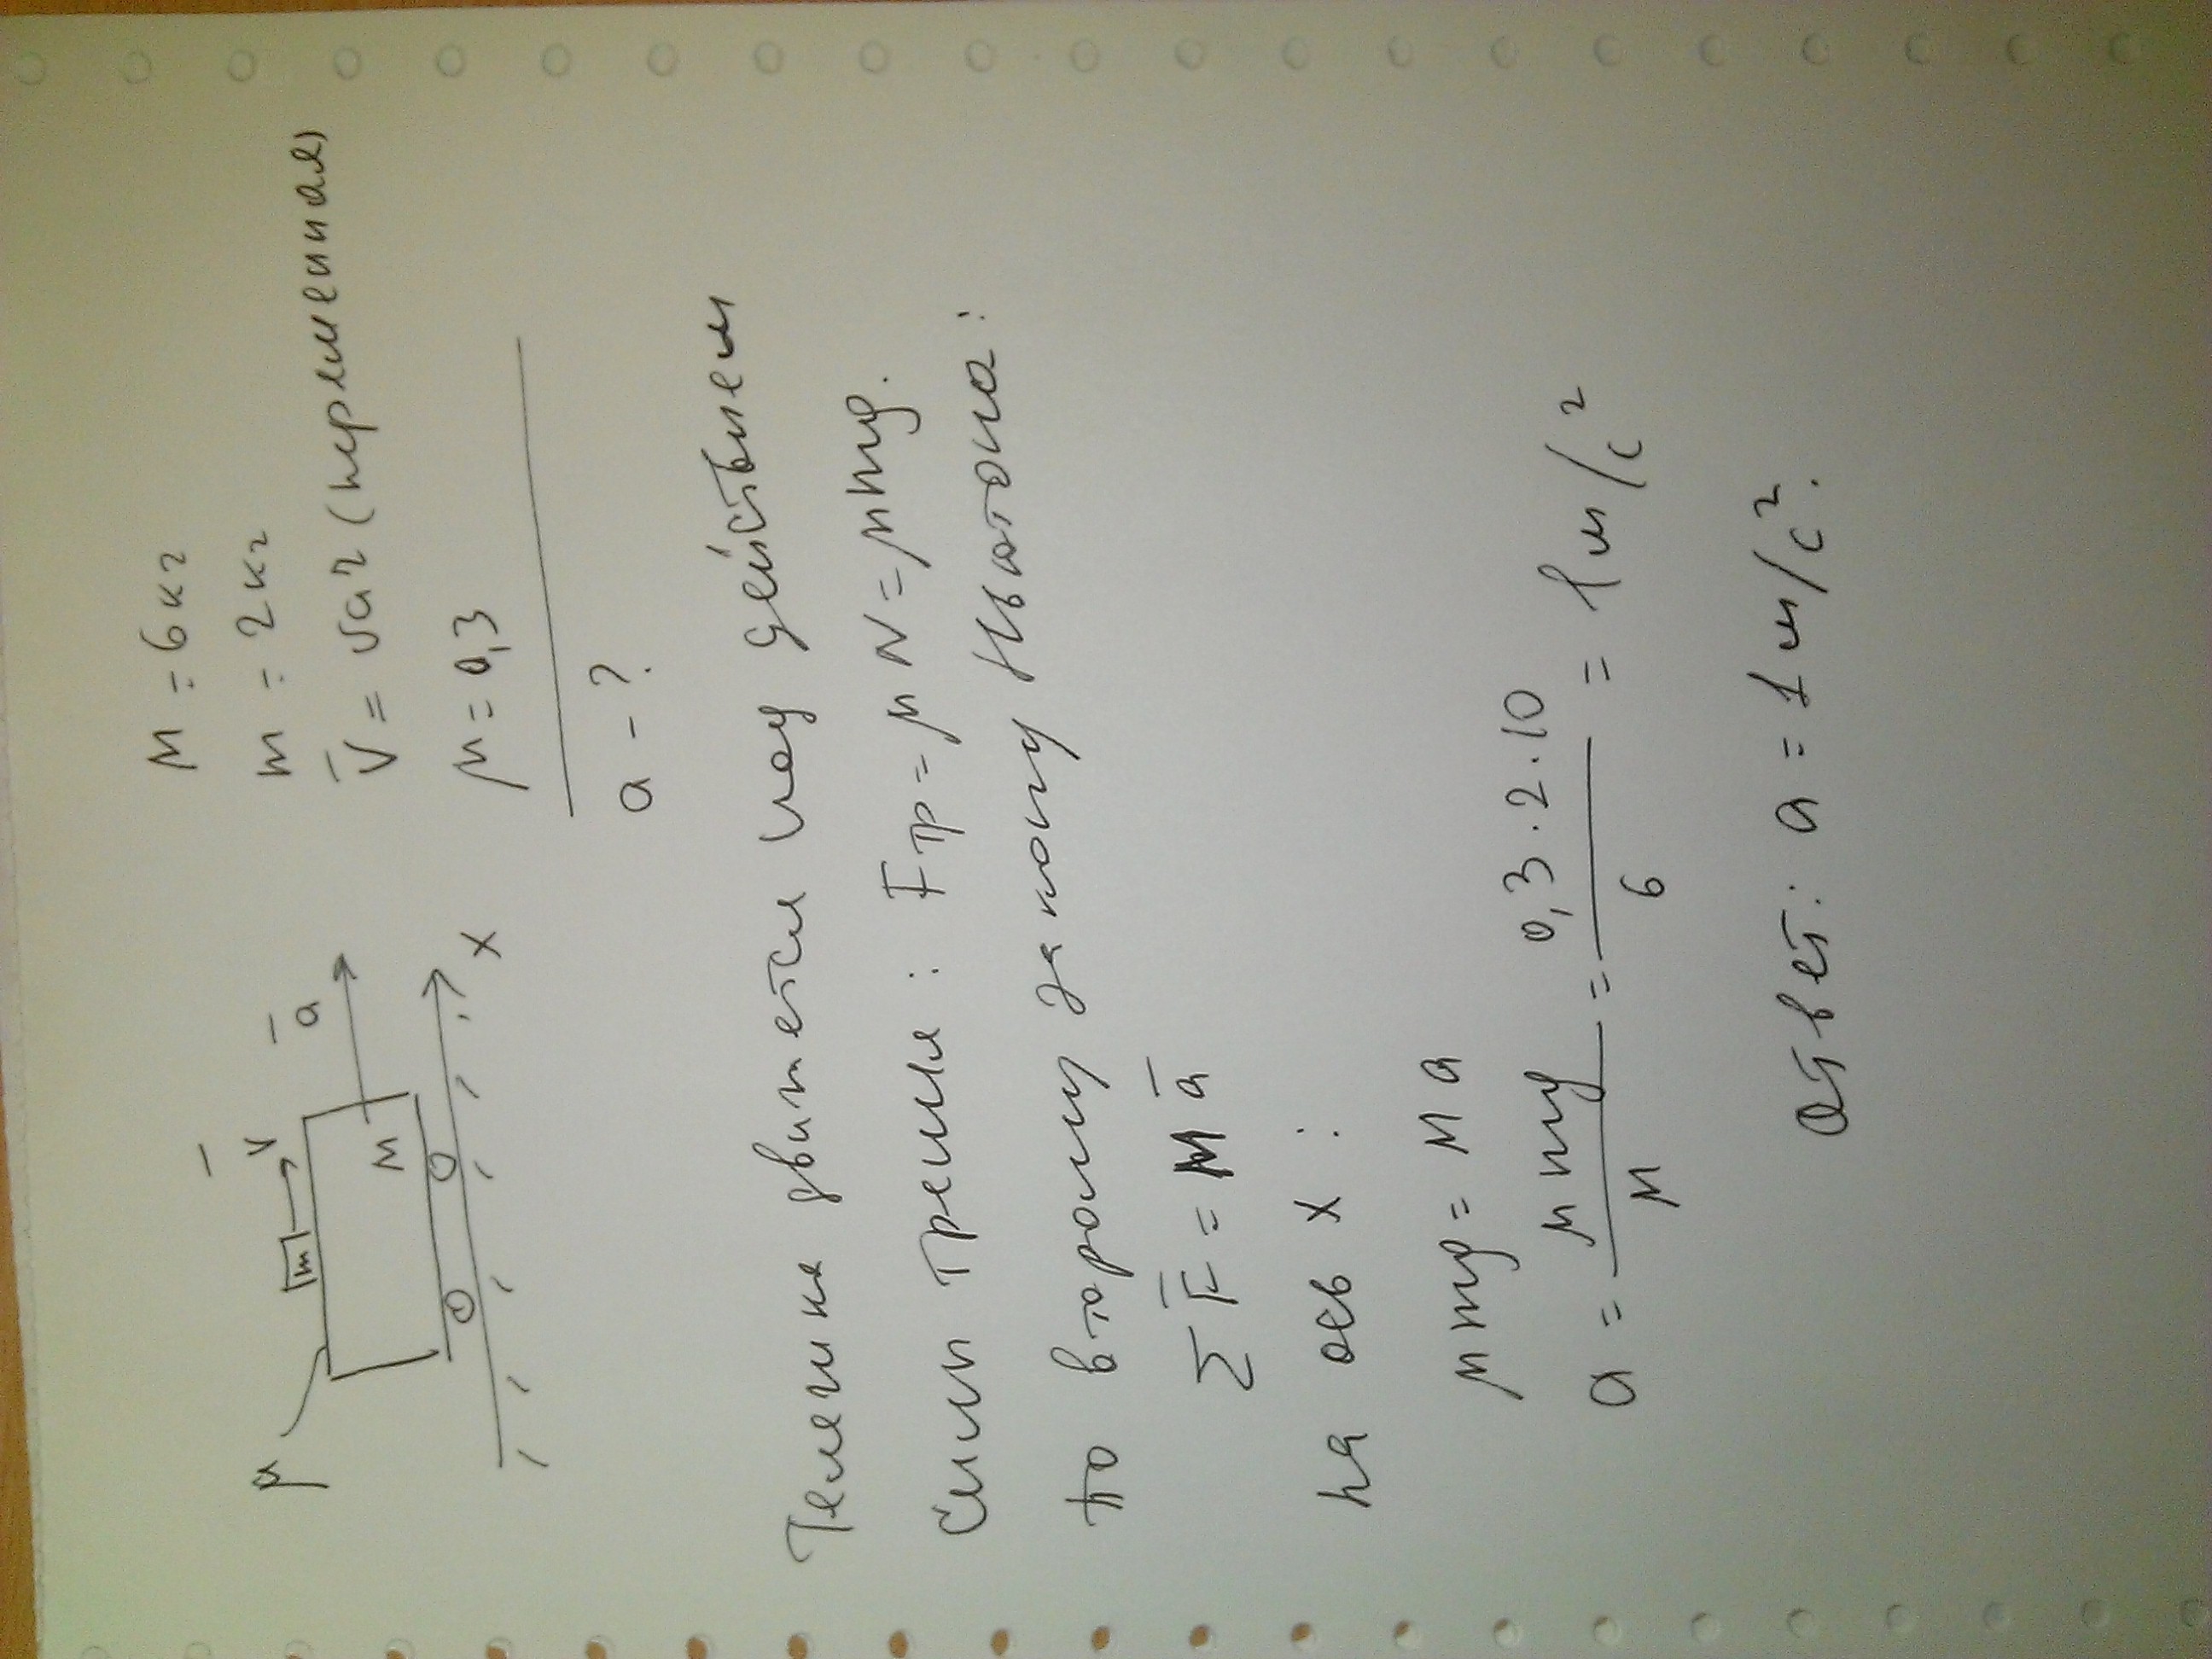 M = 6 кг
m = 2 кг
V̄ = var (переменная)
μ = 0,3
a - ?
μ
m
V̄
ā
M
x
Тележка движется под действием
силы трения : Fтр = μN = μmg.
по второму закону Ньютона :
ΣF̄ = Mā
на ось x :
μmg = Ma
a = μmg / M = 0,3 · 2 · 10 / 6 = 1 м/с²
Ответ: a = 1 м/с².